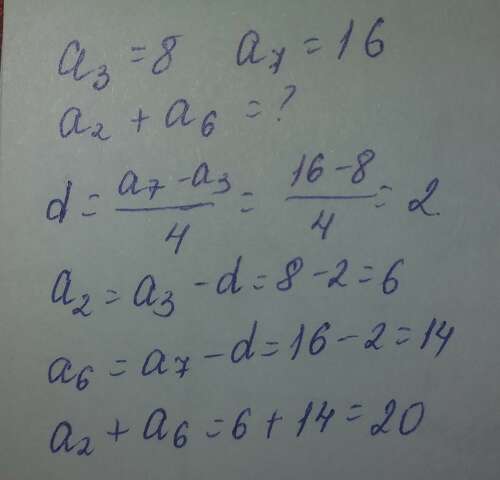 a₃ = 8 a₇ = 16
a₂ + a₆ = ?
d = (a₇ - a₃)/4 = (16 - 8)/4 = 2.
a₂ = a₃ - d = 8 - 2 = 6
a₆ = a₇ - d = 16 - 2 = 14
a₂ + a₆ = 6 + 14 = 20